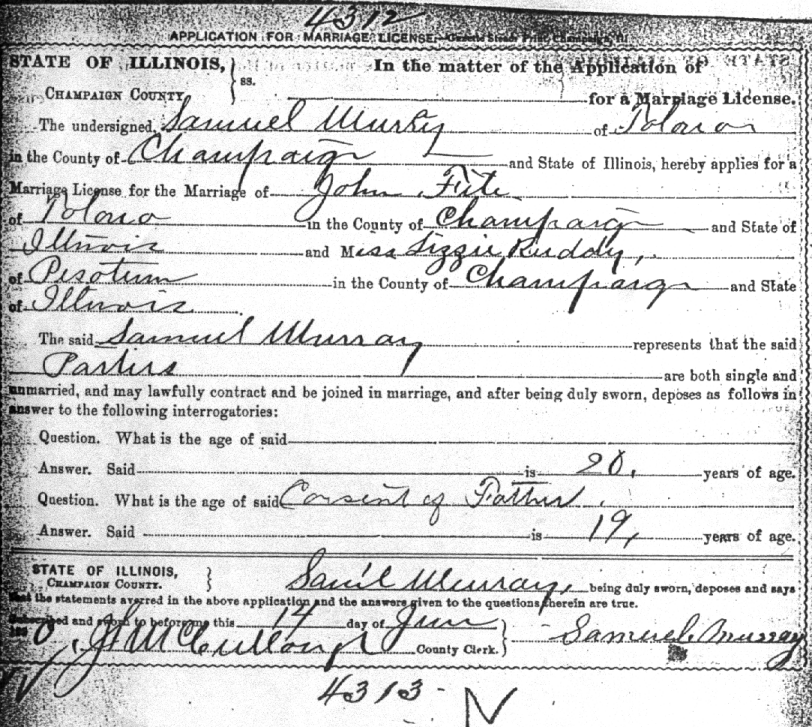 4312
APPLICATION FOR MARRIAGE LICENSE.
STATE OF ILLINOIS, } ss. In the matter of the Application of
CHAMPAIGN COUNTY, for a Marriage License.
The undersigned, Samuel Murry of Tolono
in the County of Champaign and State of Illinois, hereby applies for a
Marriage License for the Marriage of John Fite
of Tolono in the County of Champaign and State of
Illinois and Miss Lizzie Ruddy,
of Pesotum in the County of Champaign and State
of Illinois
The said Samuel Murray represents that the said
Parties are both single and
unmarried, and may lawfully contract and be joined in marriage, and after being duly sworn, deposes as follows in
answer to the following interrogatories:
Question. What is the age of said
Answer. Said is 20, years of age.
Question. What is the age of said Consent of Father.
Answer. Said is 19, years of age.
STATE OF ILLINOIS, }
CHAMPAIGN COUNTY. Saml Murray, being duly sworn, deposes and says
that the statements averred in the above application and the answers given to the questions therein are true.
Subscribed and sworn to before me this 14 day of June } Samuel Murray
J McCullough County Clerk.
4313